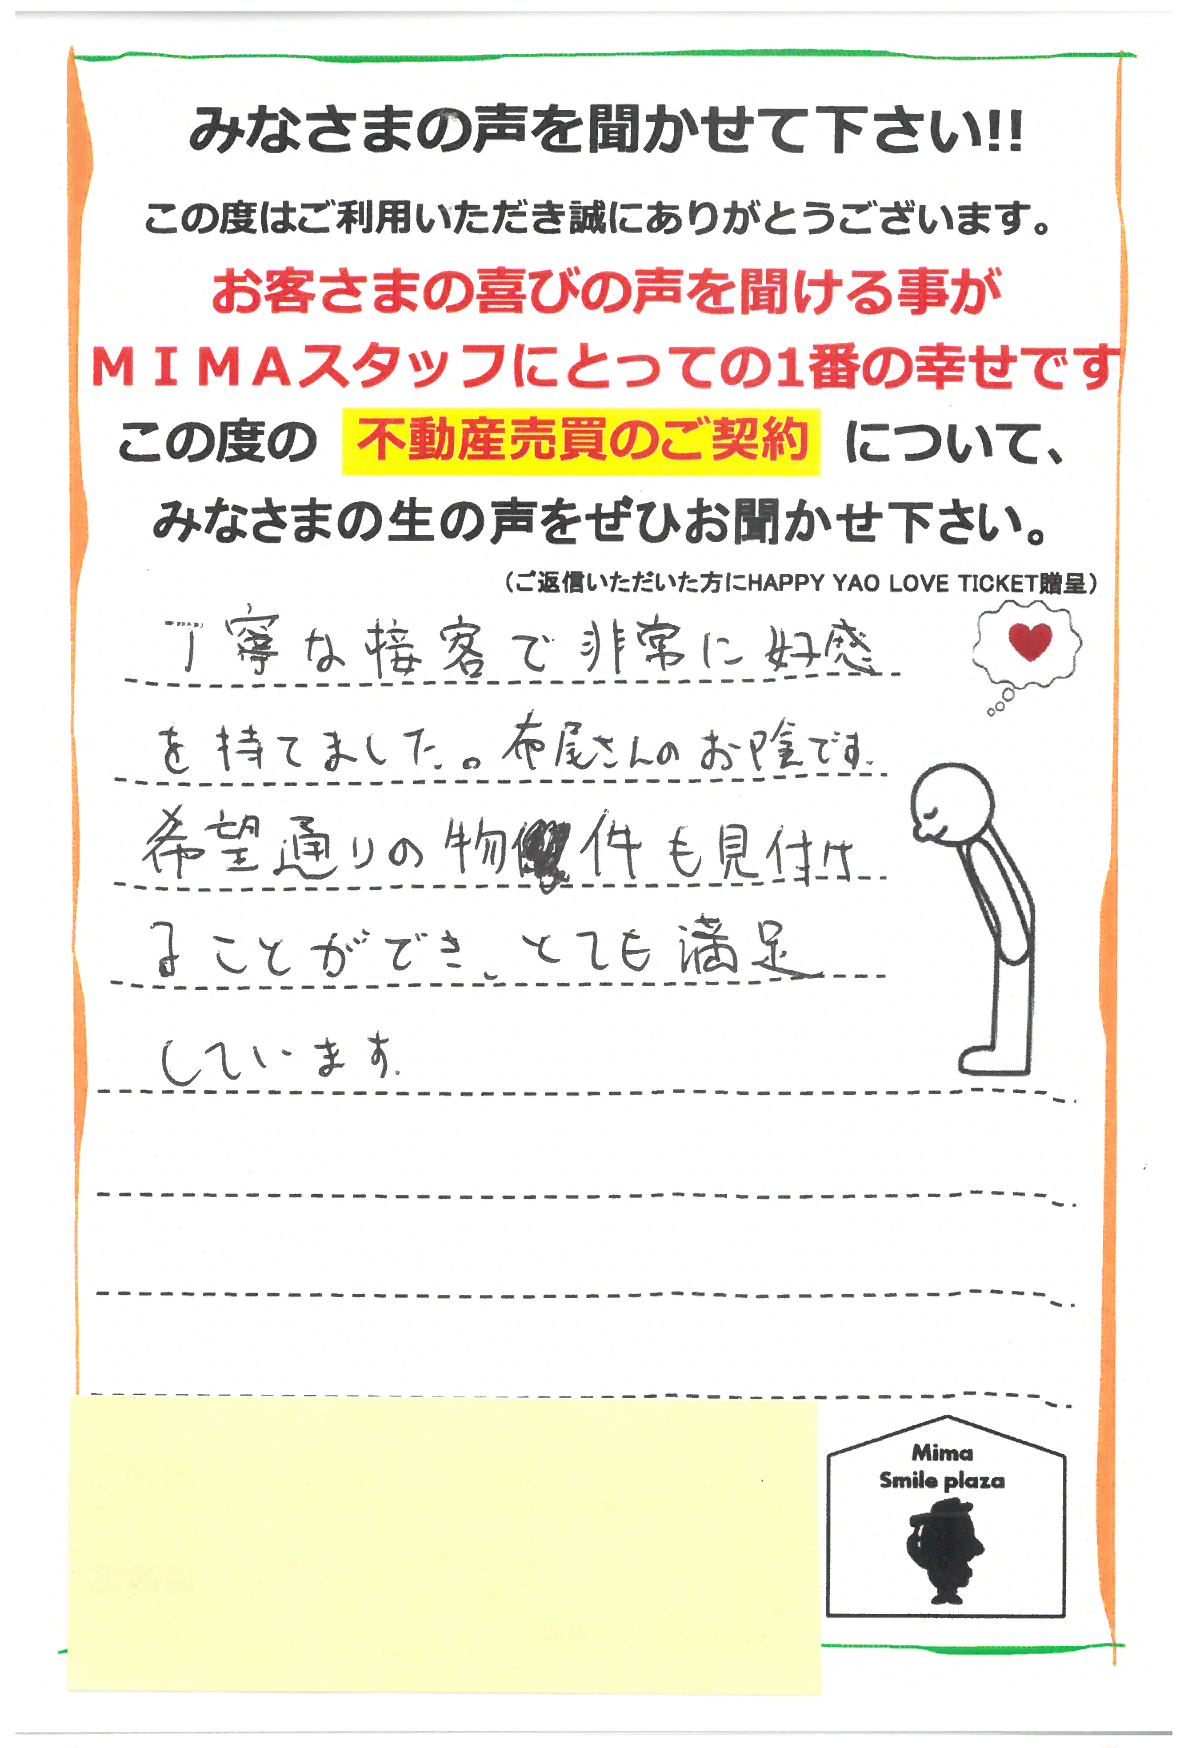 みなさまの声を聞かせて下さい!!
この度はご利用いただき誠にありがとうございます。
お客さまの喜びの声を聞ける事が
ＭＩＭＡスタッフにとっての1番の幸せです
この度の 不動産売買のご契約 について、
みなさまの生の声をぜひお聞かせ下さい。
（ご返信いただいた方にHAPPY YAO LOVE TICKET贈呈）
丁寧な接客で非常に好感
を持てました。布尾さんのお陰です.
希望通りの物件も見付け
ることができ、とても満足
しています.
Mima
Smile plaza